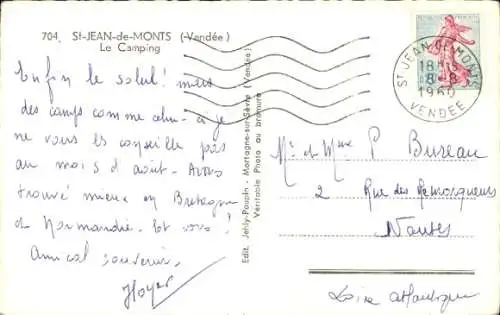 704. St-JEAN-de-MONTS (Vendée)
Le Camping
Enfin le soleil! mais
des camps comme celui-là je
ne vous les conseille pas
au mois d'août. Avons
trouvé mieux en Bretagne
et Normandie. Et vous?
Amical souvenir.
Edit. Jehly-Poupin - Mortagne-sur-Sèvre (Vendée)
Véritable Photo au bromure
ST JEAN DE MONTS
18H15
8-8
1960
VENDEE
Mr et Mme P Bureau
2 Rue des Remorqueurs
Nantes
Loire Atlantique